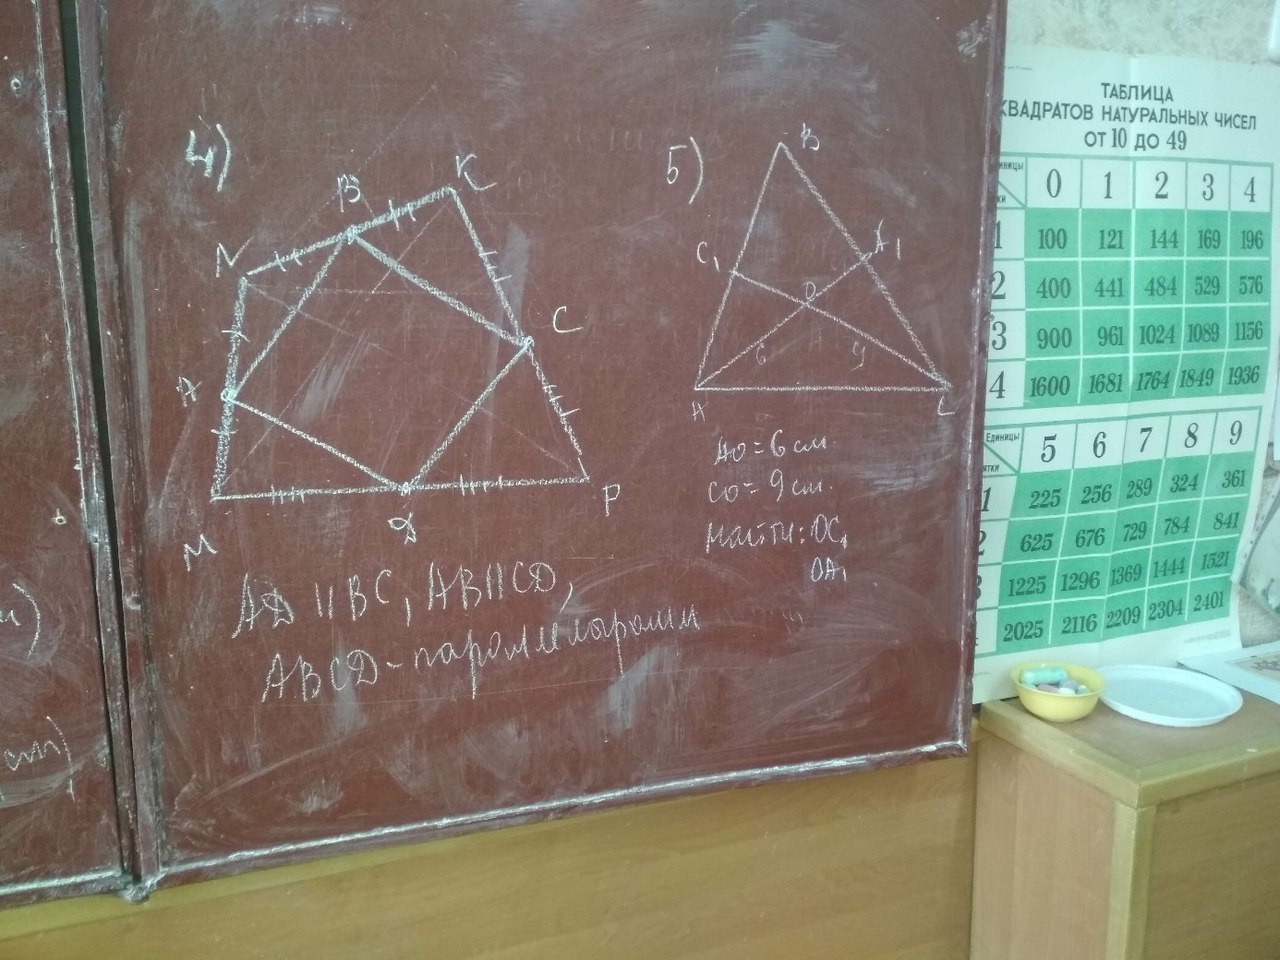 4)
B
K
N
C
A
M
D
P
AD || BC, AB || CD,
ABCD - параллелограмм
5)
B
C₁
A₁
O
6
9
A
C
AO = 6 см
CO = 9 см.
Найти: OC₁
OA₁
ТАБЛИЦА
КВАДРАТОВ НАТУРАЛЬНЫХ ЧИСЕЛ
ОТ 10 ДО 49
0 1 2 3 4
1 100 121 144 169 196
2 400 441 484 529 576
3 900 961 1024 1089 1156
4 1600 1681 1764 1849 1936
Единицы
5 6 7 8 9
1 225 256 289 324 361
2 625 676 729 784 841
3 1225 1296 1369 1444 1521
2025 2116 2209 2304 2401